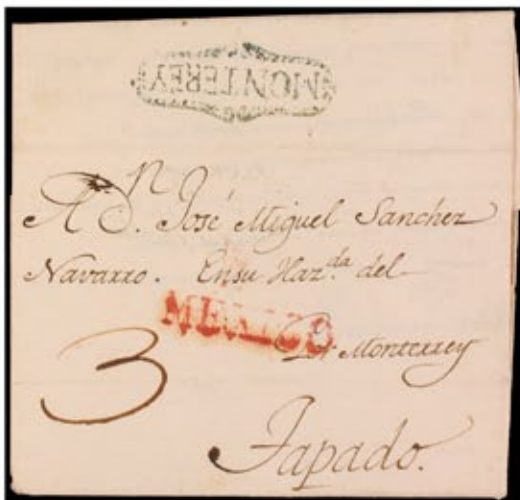 MONTEREY
A Dⁿ. José Miguel Sanchez
Navarro. En su Haz.ᵈᵃ del
MEXICO
Por Monterrey
3
Tapado.